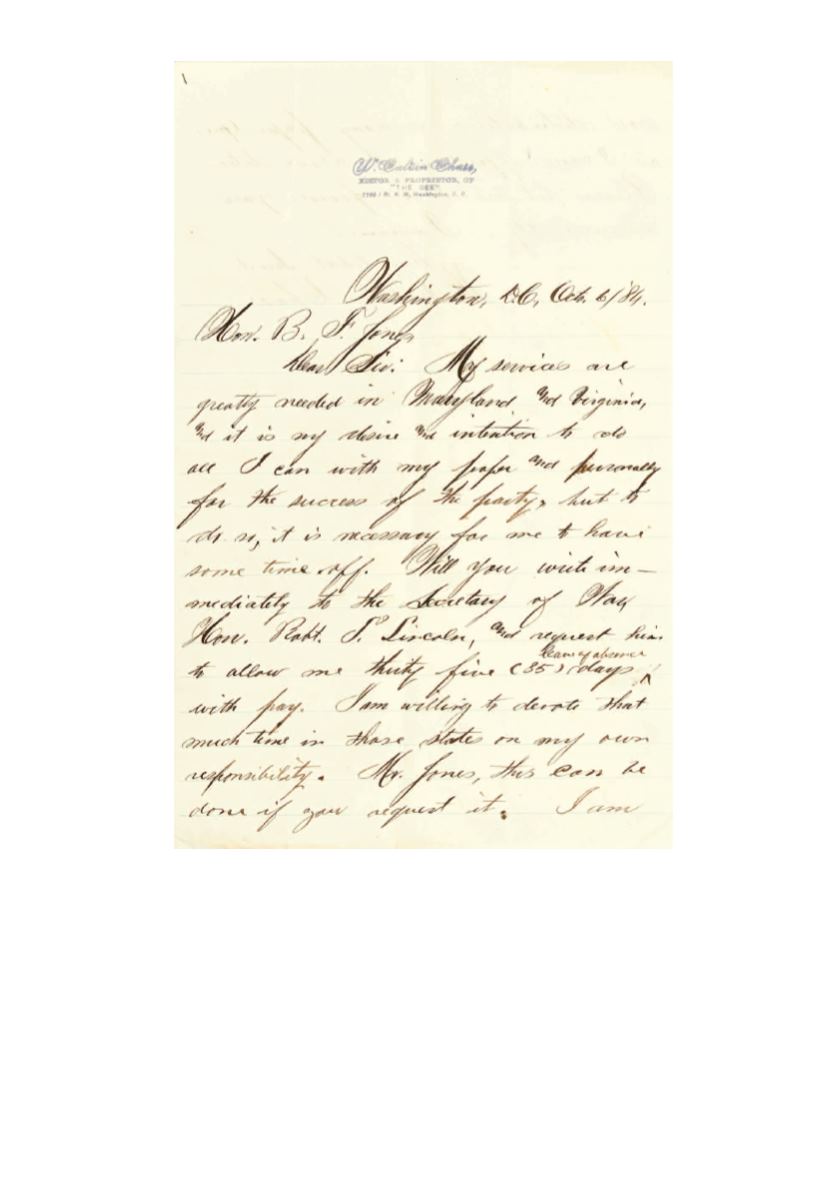 W. Calvin Chase,
EDITOR & PROPRIETOR, OF
"THE BEE"
St. N. W, Washington, D. C.
Washington, D.C, Oct. 6/84.
Hon. B. F. Jones
Dear Sir: My services are
greatly needed in Maryland and Virginia,
and it is my desire and intention to do
all I can with my paper and personally
for the success of the party, but to
do so, it is necessary for me to have
some time off. Will you write im-
mediately to the Secretary of War,
Hon. Robt. T. Lincoln, and request him
leave of absence
to allow me thirty five (35) days
with pay. I am willing to devote that
much time in those states on my own
responsibility. Mr. Jones, this can be
done if you request it. I am